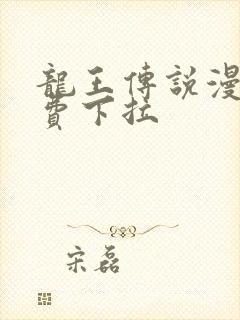 龍王傳說漫
費下拉
宋磊